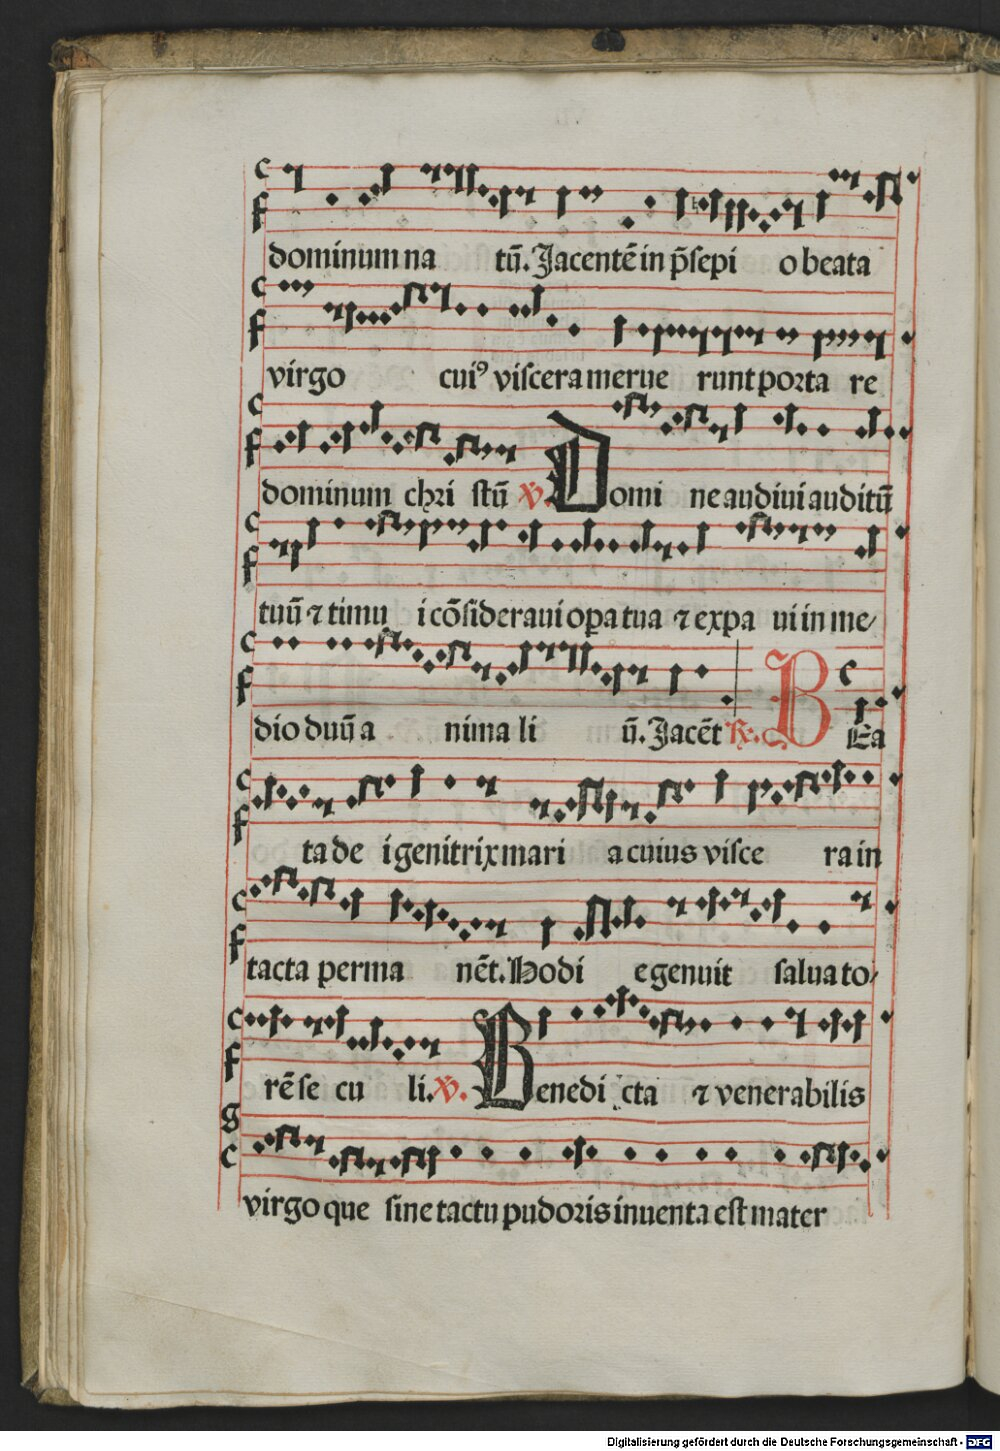 dominum na tū. Jacentē in p̄sepi o beata
virgo cui⁹ viscera merue runt porta re
dominum chri stū ℣. Domi ne audiui auditū
tuū ⁊ timu i cōsideraui opa tua ⁊ expa ui in me/
dio duū a nima li ū. Jacēt ℟. BEa
ta de i genitrix mari a cuius visce ra in
tacta perma nēt. Hodi e genuit salua to/
rē se cu li. ℣. Benedi cta ⁊ venerabilis
virgo que sine tactu pudoris inuenta est mater
Digitalisierung gefördert durch die Deutsche Forschungsgemeinschaft - DFG